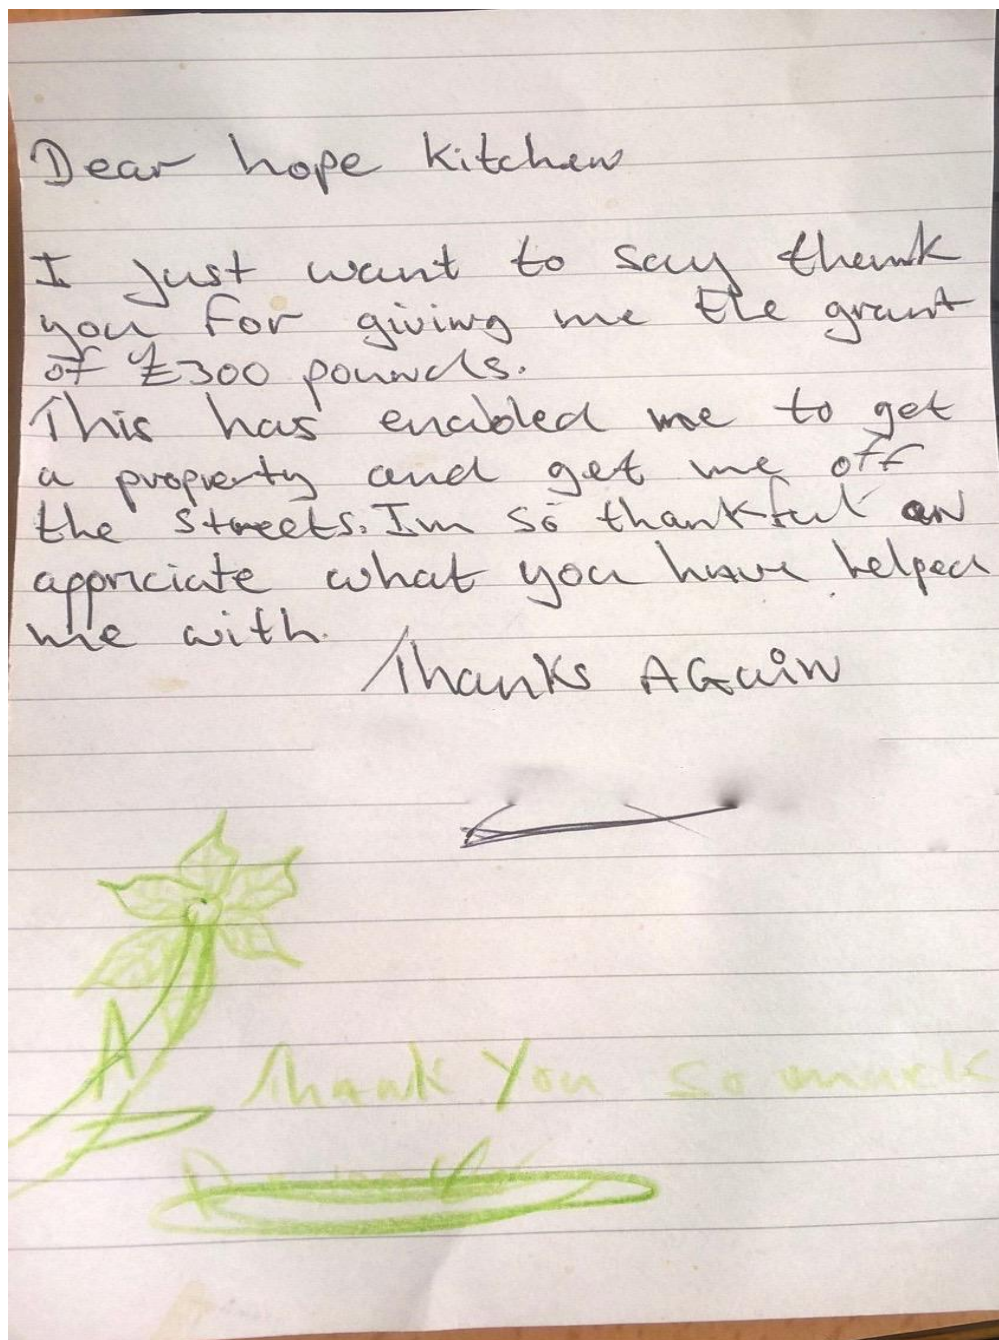 Dear hope kitchen
I just want to say thank
you for giving me the grant
of £300 pounds.
This has enabled me to get
a property and get me off
the streets. Im so thankful an
appriciate what you have helped
me with.
Thanks AGaiN
Thank You so much